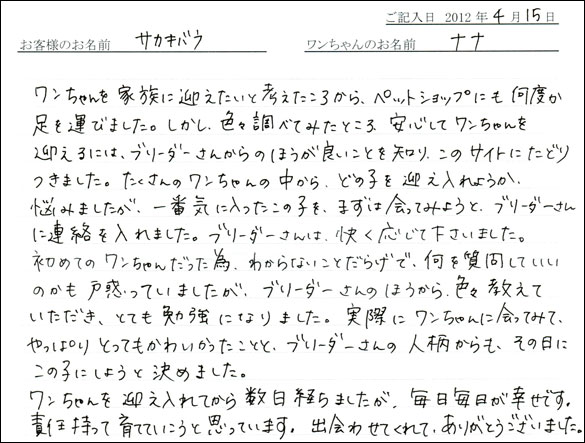 ご記入日 2012年4月15日
お客様のお名前 サカキバラ ワンちゃんのお名前 ナナ
ワンちゃんを家族に迎えたいと考えたころから、ペットショップにも何度か
足を運びました。しかし、色々調べてみたところ、安心してワンちゃんを
迎えるには、ブリーダーさんからのほうが良いことを知り、このサイトにたどり
つきました。たくさんのワンちゃんの中から、どの子を迎え入れようか、
悩みましたが、一番気に入ったこの子を、まずは会ってみようと、ブリーダーさん
に連絡を入れました。ブリーダーさんは、快く応じて下さいました。
初めてのワンちゃんだった為、わからないことだらけで、何を質問していい
のかも戸惑っていましたが、ブリーダーさんのほうから、色々教えて
いただき、とても勉強になりました。実際にワンちゃんに会ってみて、
やっぱりとってもかわいかったことと、ブリーダーさんの人柄からも、その日に
この子にしようと決めました。
ワンちゃんを迎え入れてから数日経ちましたが、毎日毎日が幸せです。
責任持って育てていこうと思っています。出会わせてくれて、ありがとうございました。